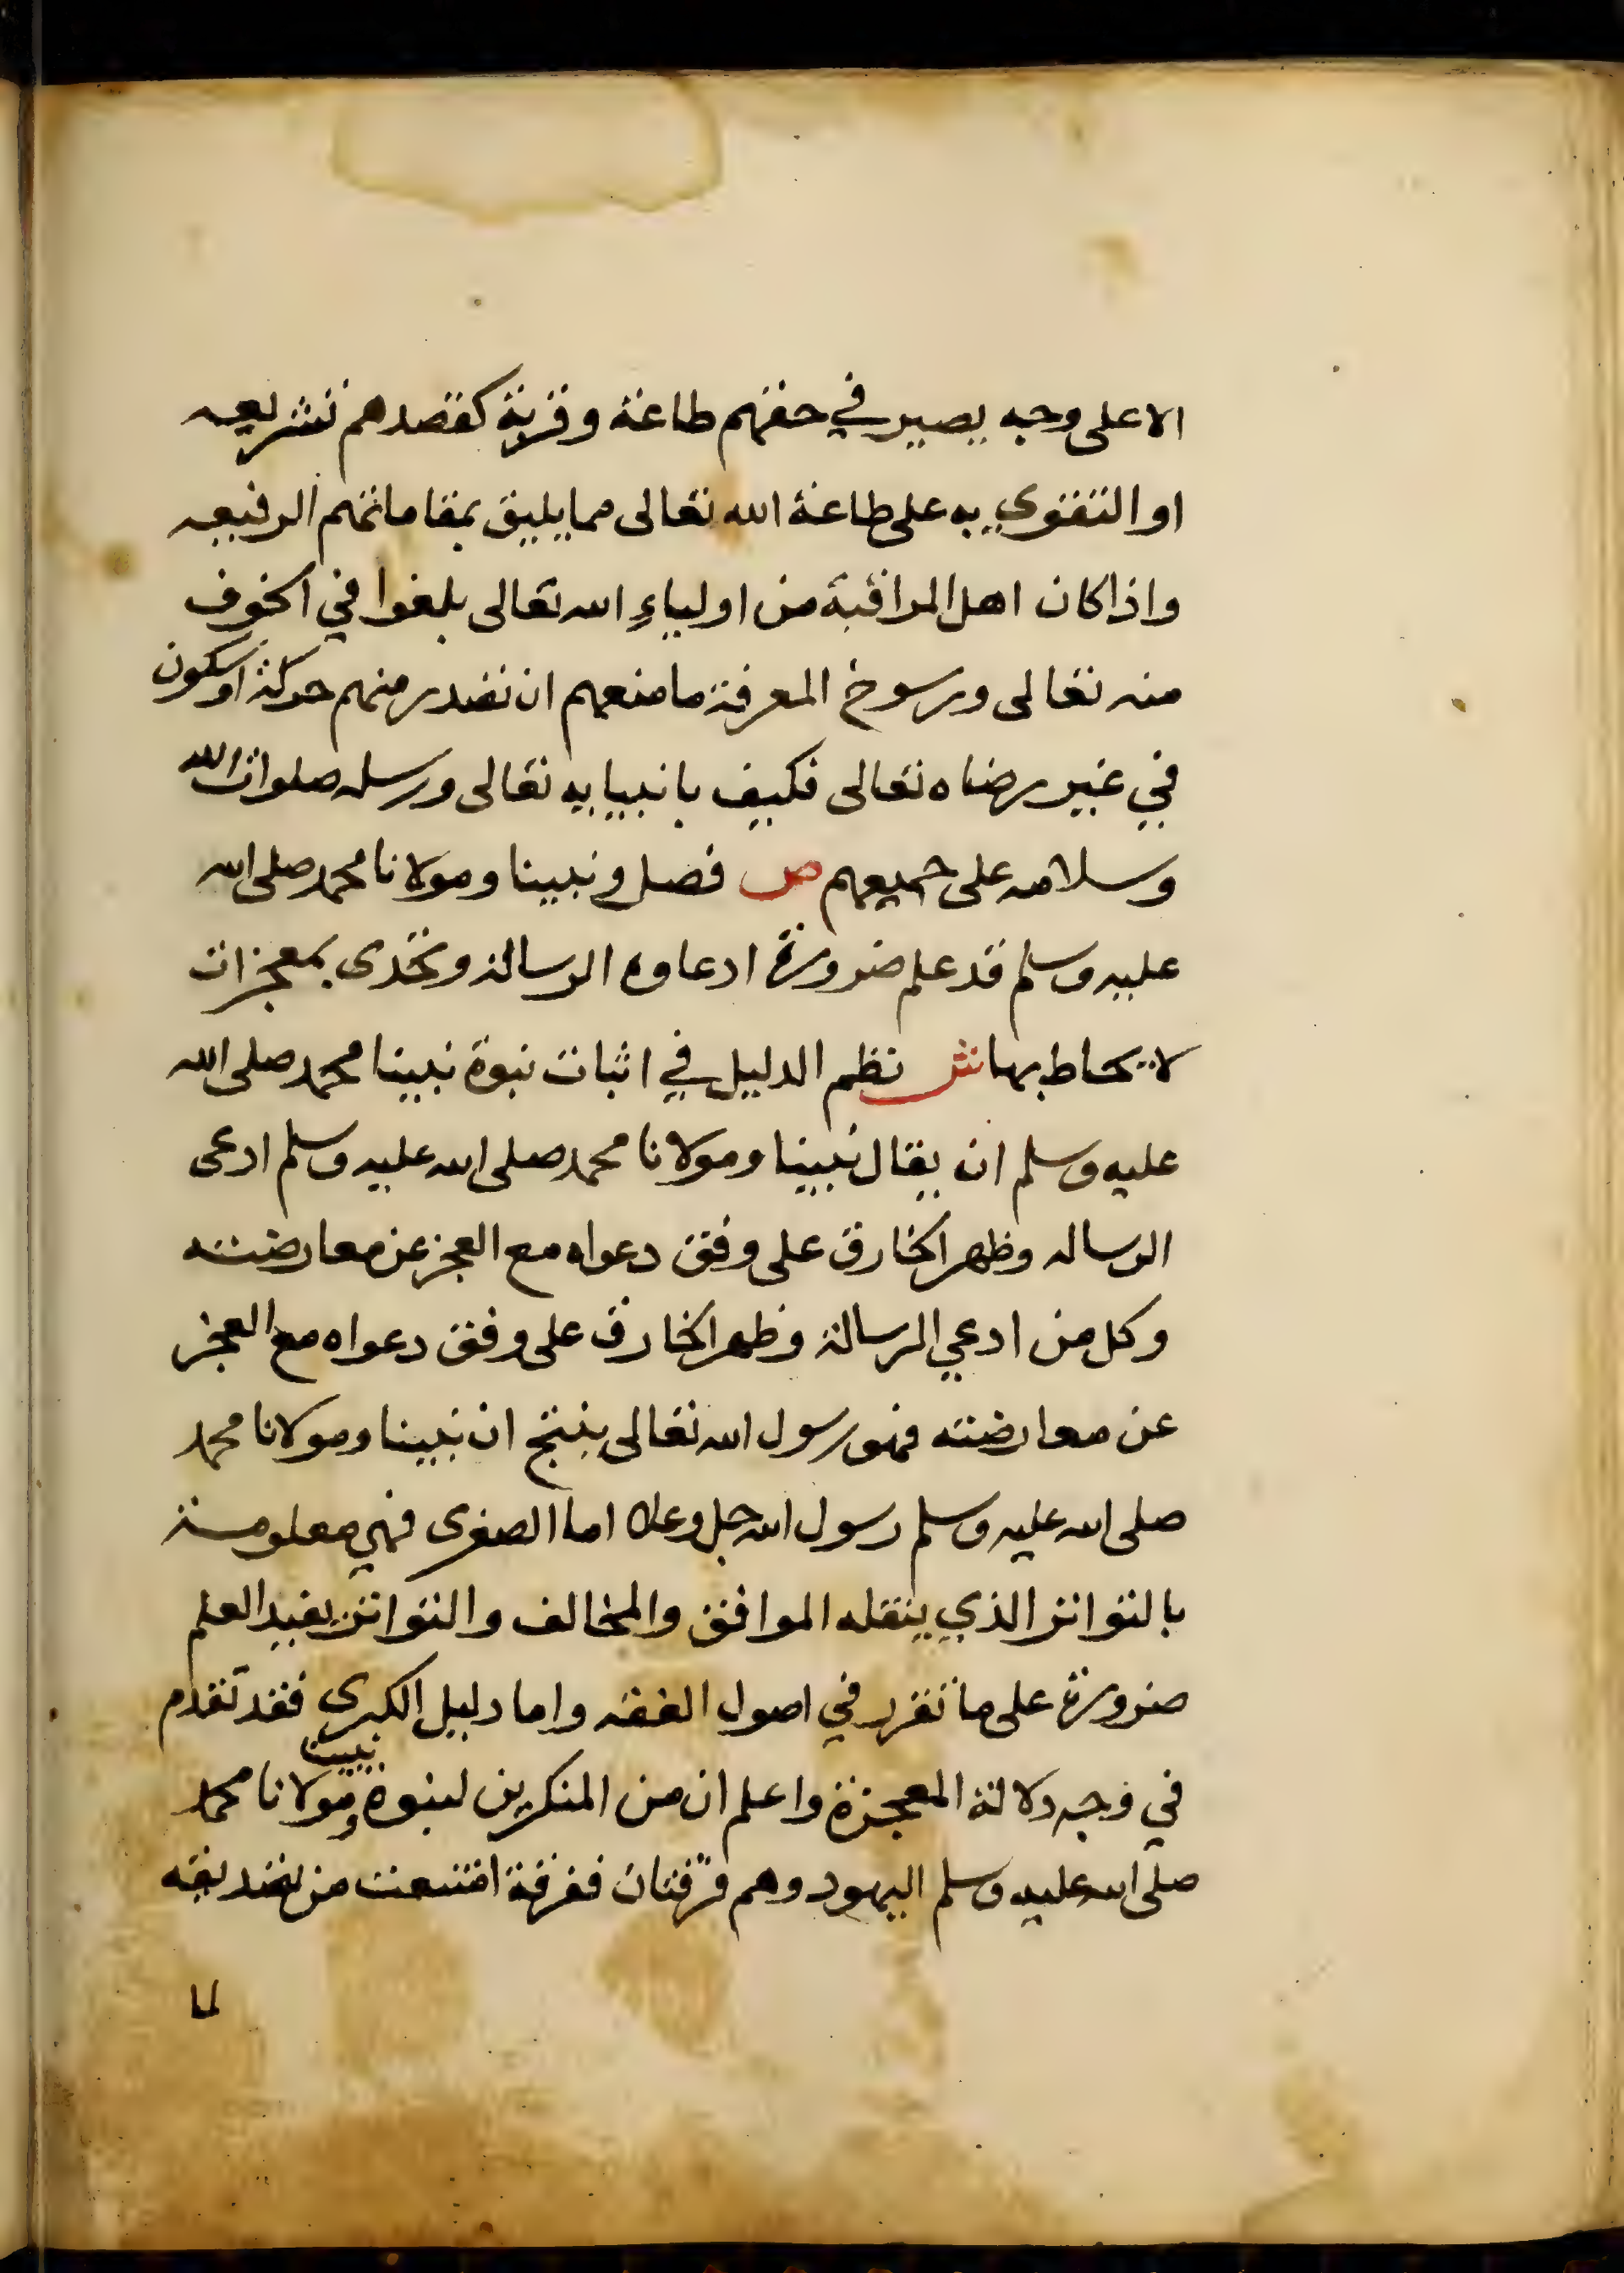 الا على وجه يصير في حقهم طاعة وقربة كقصدهم تشريعه
او التقوي به على طاعة الله تعالى مما يليق بمقاماتهم الرفيعه
واذا كان اهل المراقبة من اولياء الله تعالى بلغوا في الخوف
منه تعالى ورسوخ المعرفة ما منعهم ان تصدر منهم حركة او سكون
في غير رضاه تعالى فكيف بانبيايه تعالى ورسله صلوات الله
وسلامه على جميعهم ص فصل ونبينا ومولانا محمد صلى الله
عليه وسلم قد علم ضرورة ادعاوه الرسالة وتحدى بمعجزات
لا يحاط بها ش نظم الدليل في اثبات نبوة نبينا محمد صلى الله
عليه وسلم ان يقال نبينا ومولانا محمد صلى الله عليه وسلم ادعى
الرساله وظهر الخارق على وفق دعواه مع العجز عن معارضته
وكل من ادعي الرسالة وظهر الخارق على وفق دعواه مع العجز
عن معارضته فهو رسول الله تعالى ينتج ان نبينا ومولانا محمد
صلى الله عليه وسلم رسول الله جل وعلا اما الصغرى فهي معلومة
بالتواتر الذي ينقله الموافق والمخالف والتواتر يفيد العلم
ضرورة على ما تقرر في اصول الفقه واما دليل الكبرى فقد تقدم
في وجه دلالة المعجزة واعلم ان من المنكرين لنبوة نبينا ومولانا محمد
صلى الله عليه وسلم اليهود وهم فرقتان ففرقة امتنعت من تصديقه
لما